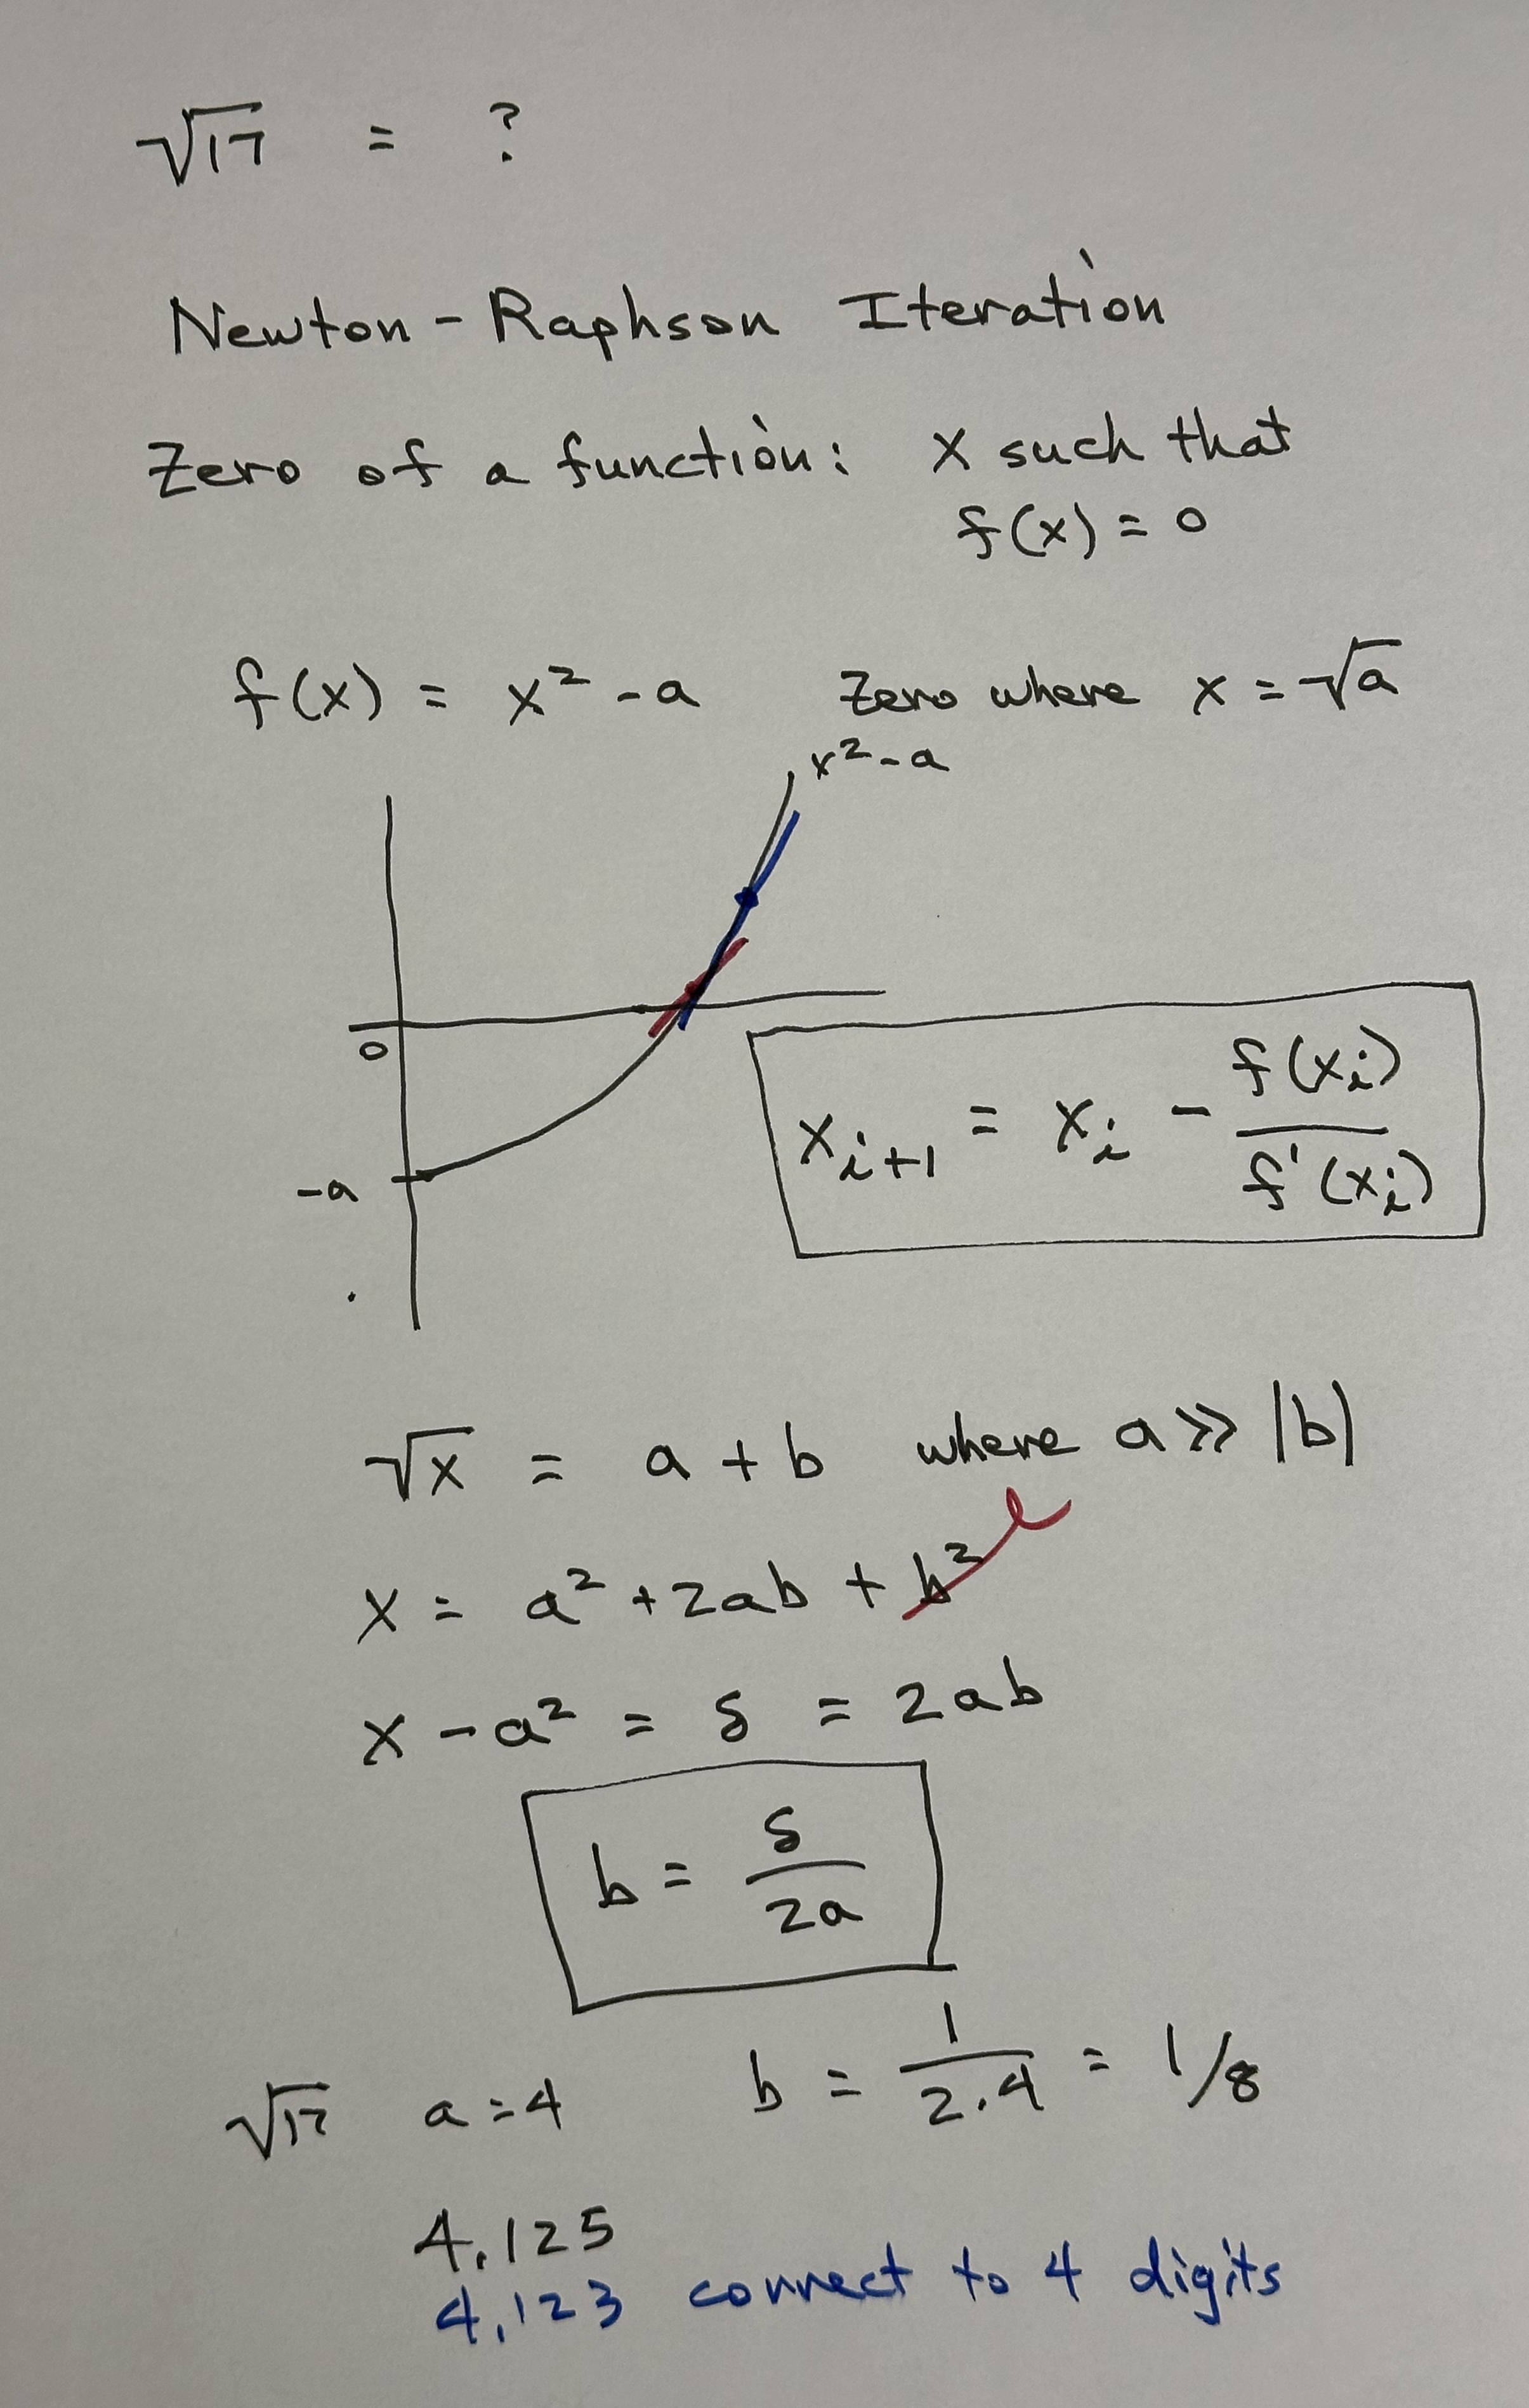 √17 = ?
Newton-Raphson Iteration
Zero of a function: x such that
f(x) = 0
f(x) = x² - a zero where x = √a
x² - a
0
-a
xᵢ₊₁ = xᵢ - f(xᵢ)/f'(xᵢ)
√x = a + b where a >> |b|
x = a² + 2ab + b²
x - a² = δ = 2ab
b = δ/2a
√17 a = 4 b = 1/2.4 = 1/8
4.125
4.123 correct to 4 digits